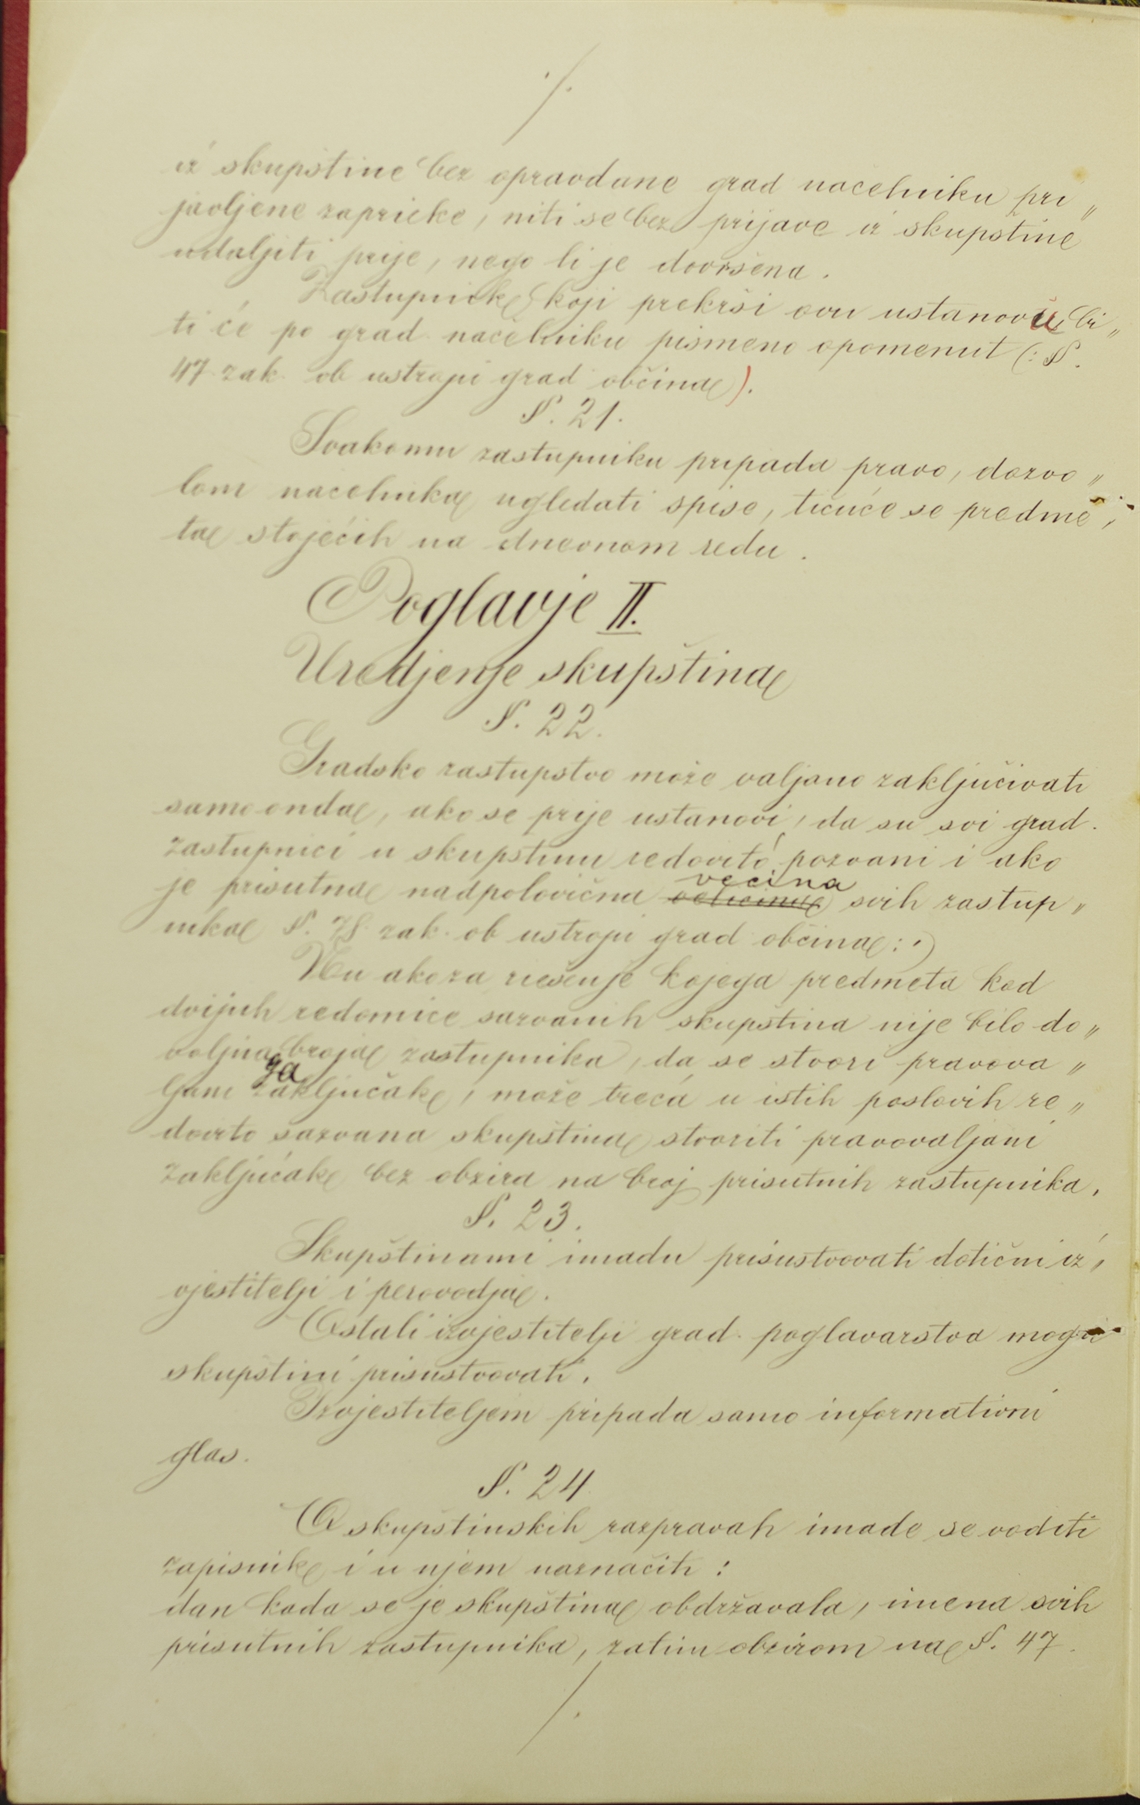 ./.
iz skupštine bez opravdane grad načelniku pri„
javljene zapricke, niti se bez prijave iz skupštine
udaljiti prije, nego li je dovršena.
Zastupnik koji prekrši ovu ustanovu, bi„
ti će po grad. načelniku pismeno opomenut (: §.
47 zak. ob ustroju grad občina).
§. 21.
Svakomu zastupniku pripada pravo, dozvo„
lom načelnika ugledati spise, tičuće se predme„
ta stojećih na dnevnom redu.
Poglavje II.
Uredjenje skupština
§. 22.
Gradsko zastupstvo može valjano zaključivati
samo onda, ako se prije ustanovi, da su svi grad.
zastupnici u skupštinu redovito pozvani i ako
većina
je prisutna nadpolovična svih zastup„
nika §. 78 zak. ob ustroju grad občina:)
Nu ako za riešenje kojega predmeta kod
dvijuh redomice sazvanih skupština nije bilo do„
voljna broja zastupnika, da se stvori pravova„
ljani zaključak, može treća u istih poslovih re„
dovito sazvana skupština stvoriti pravovaljani
zaključak bez obzira na broj prisutnih zastupnika.
§. 23.
Skupštinami imadu prisustvovati dotični iz„
vjestitelji i perovodja.
Ostali izvjestitelji grad. poglavarstva mogu
skupštini prisustvovati.
Izvjestiteljem pripada samo informativni
glas.
§. 24
O skupštinskih razpravah imade se voditi
zapisnik i u njem naznačiti:
dan kada se je skupština obdržavala, imena svih
prisutnih zastupnika, zatim obzirom na §. 47.
./.